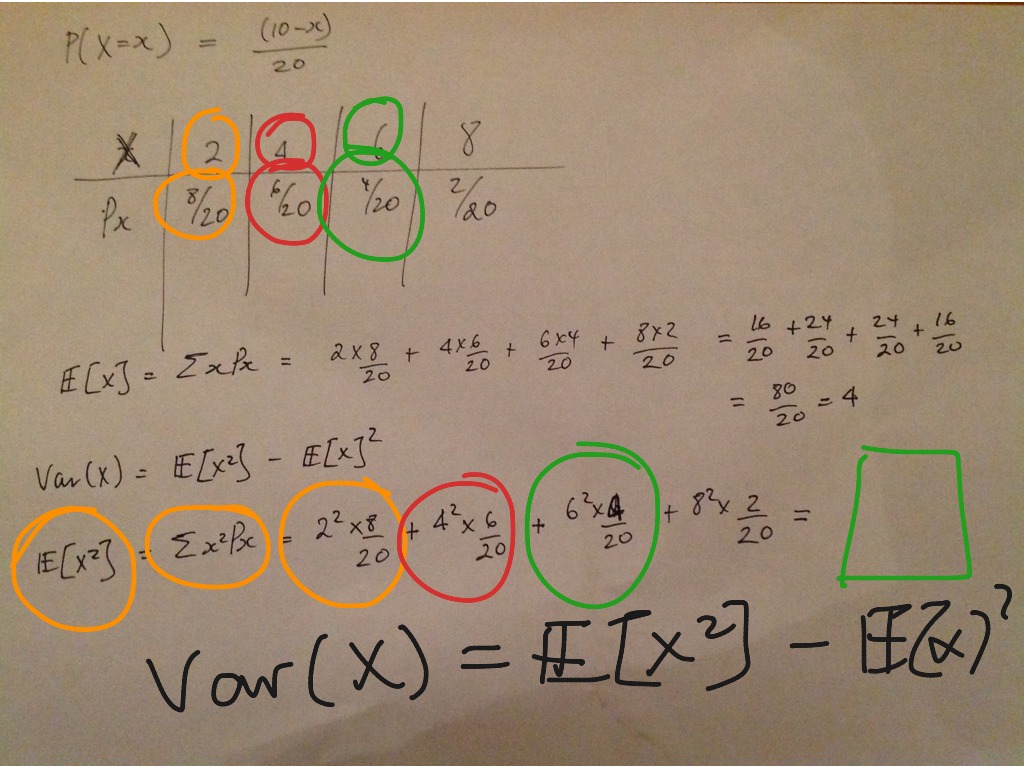 P(X=x) = (10-x)/20
X 2 4 6 8
Px 8/20 6/20 4/20 2/20
𝔼[x] = Σx Px = 2×8/20 + 4×6/20 + 6×4/20 + 8×2/20 = 16/20 + 24/20 + 24/20 + 16/20
= 80/20 = 4
Var(X) = 𝔼[x²] - 𝔼[x]²
𝔼[x²] = Σx²Px = 2²×8/20 + 4²×6/20 + 6²×4/20 + 8²×2/20 =
Var(X) = 𝔼[x²] - 𝔼(x)²